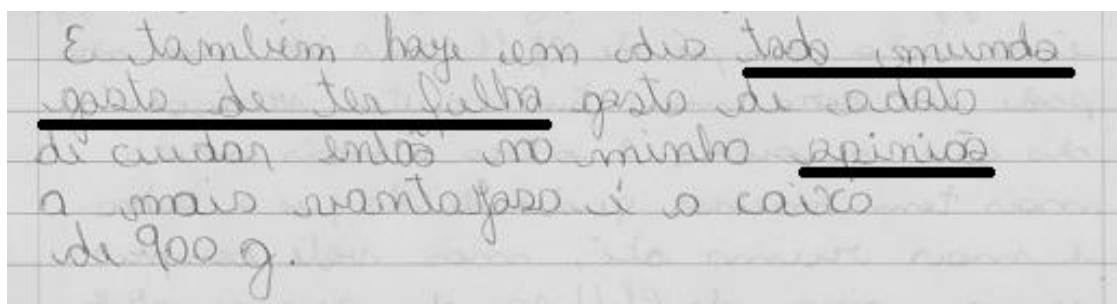 E também hoje em dia todo mundo
gosta de ter filho gosta de adota
di cuidar então na minha opinião
a mais vantajosa é a caixa
de 900 g.